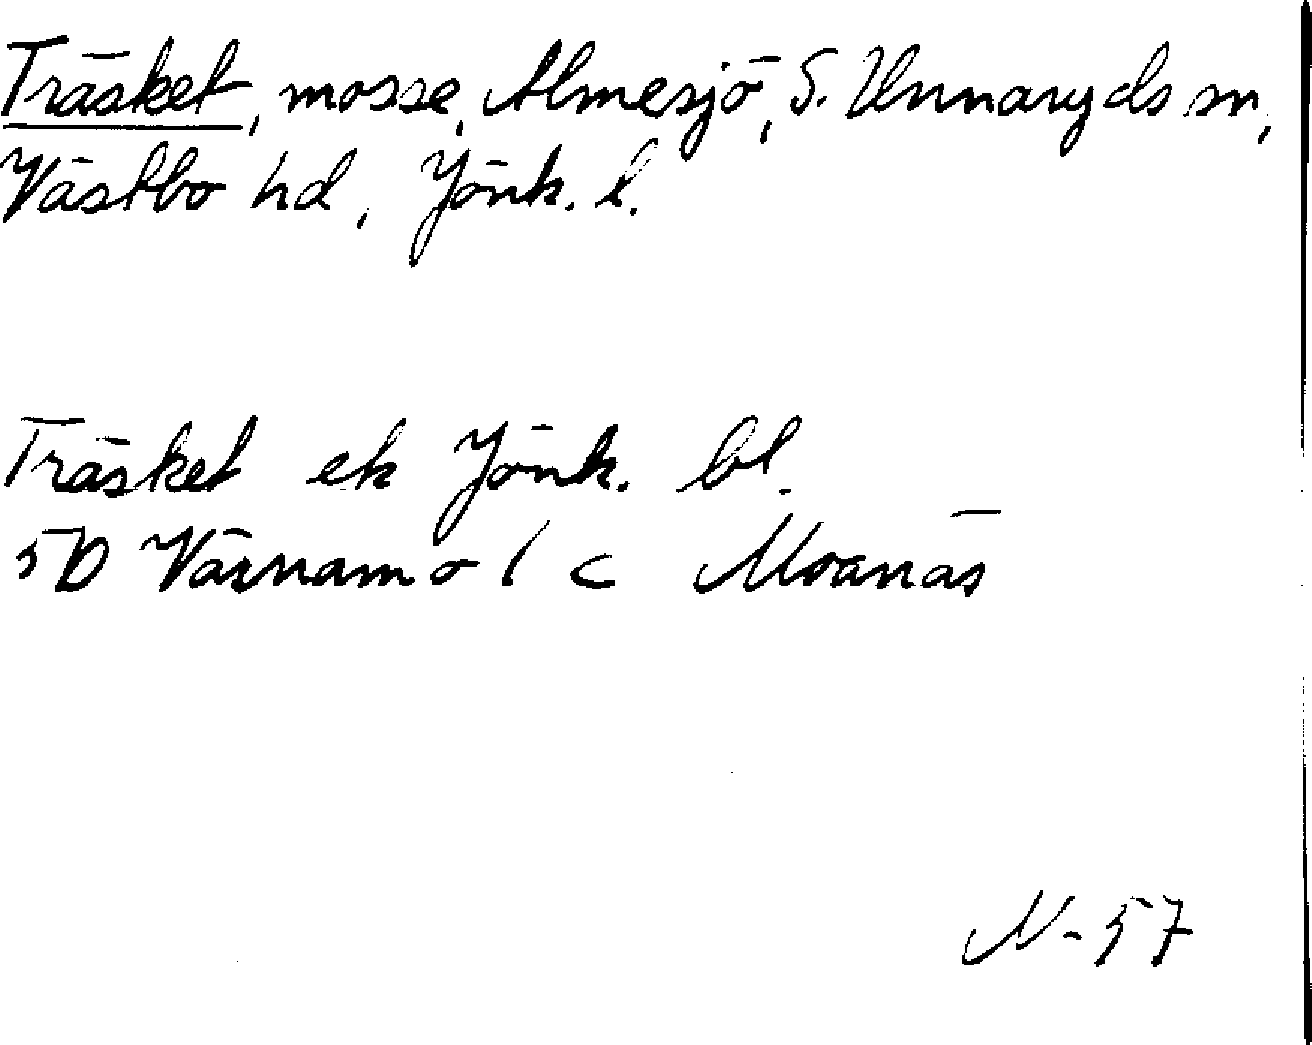 Träsket, mosse, Almesjö, S. Unnaryds sn,
Västbo hd, Jönk. l.
Träsket ek Jönk. bl.
5D Värnamo 1 c Moanäs
N-57